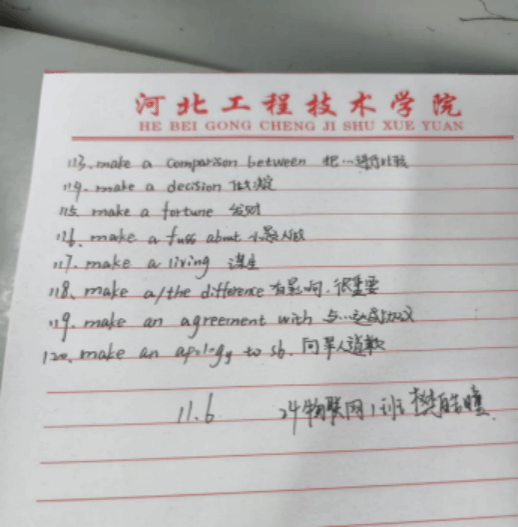 河北工程技术学院
HE BEI GONG CHENG JI SHU XUE YUAN
113. make a comparison between 把…进行比较
114. make a decision 做决定
115. make a fortune 发财
116. make a fuss about 小题大做
117. make a living 谋生
118. make a/the difference 有影响.很重要
119. make an agreement with 与…达成协议
120. make an apology to sb. 向某人道歉
11.6 24物联网1班 樊